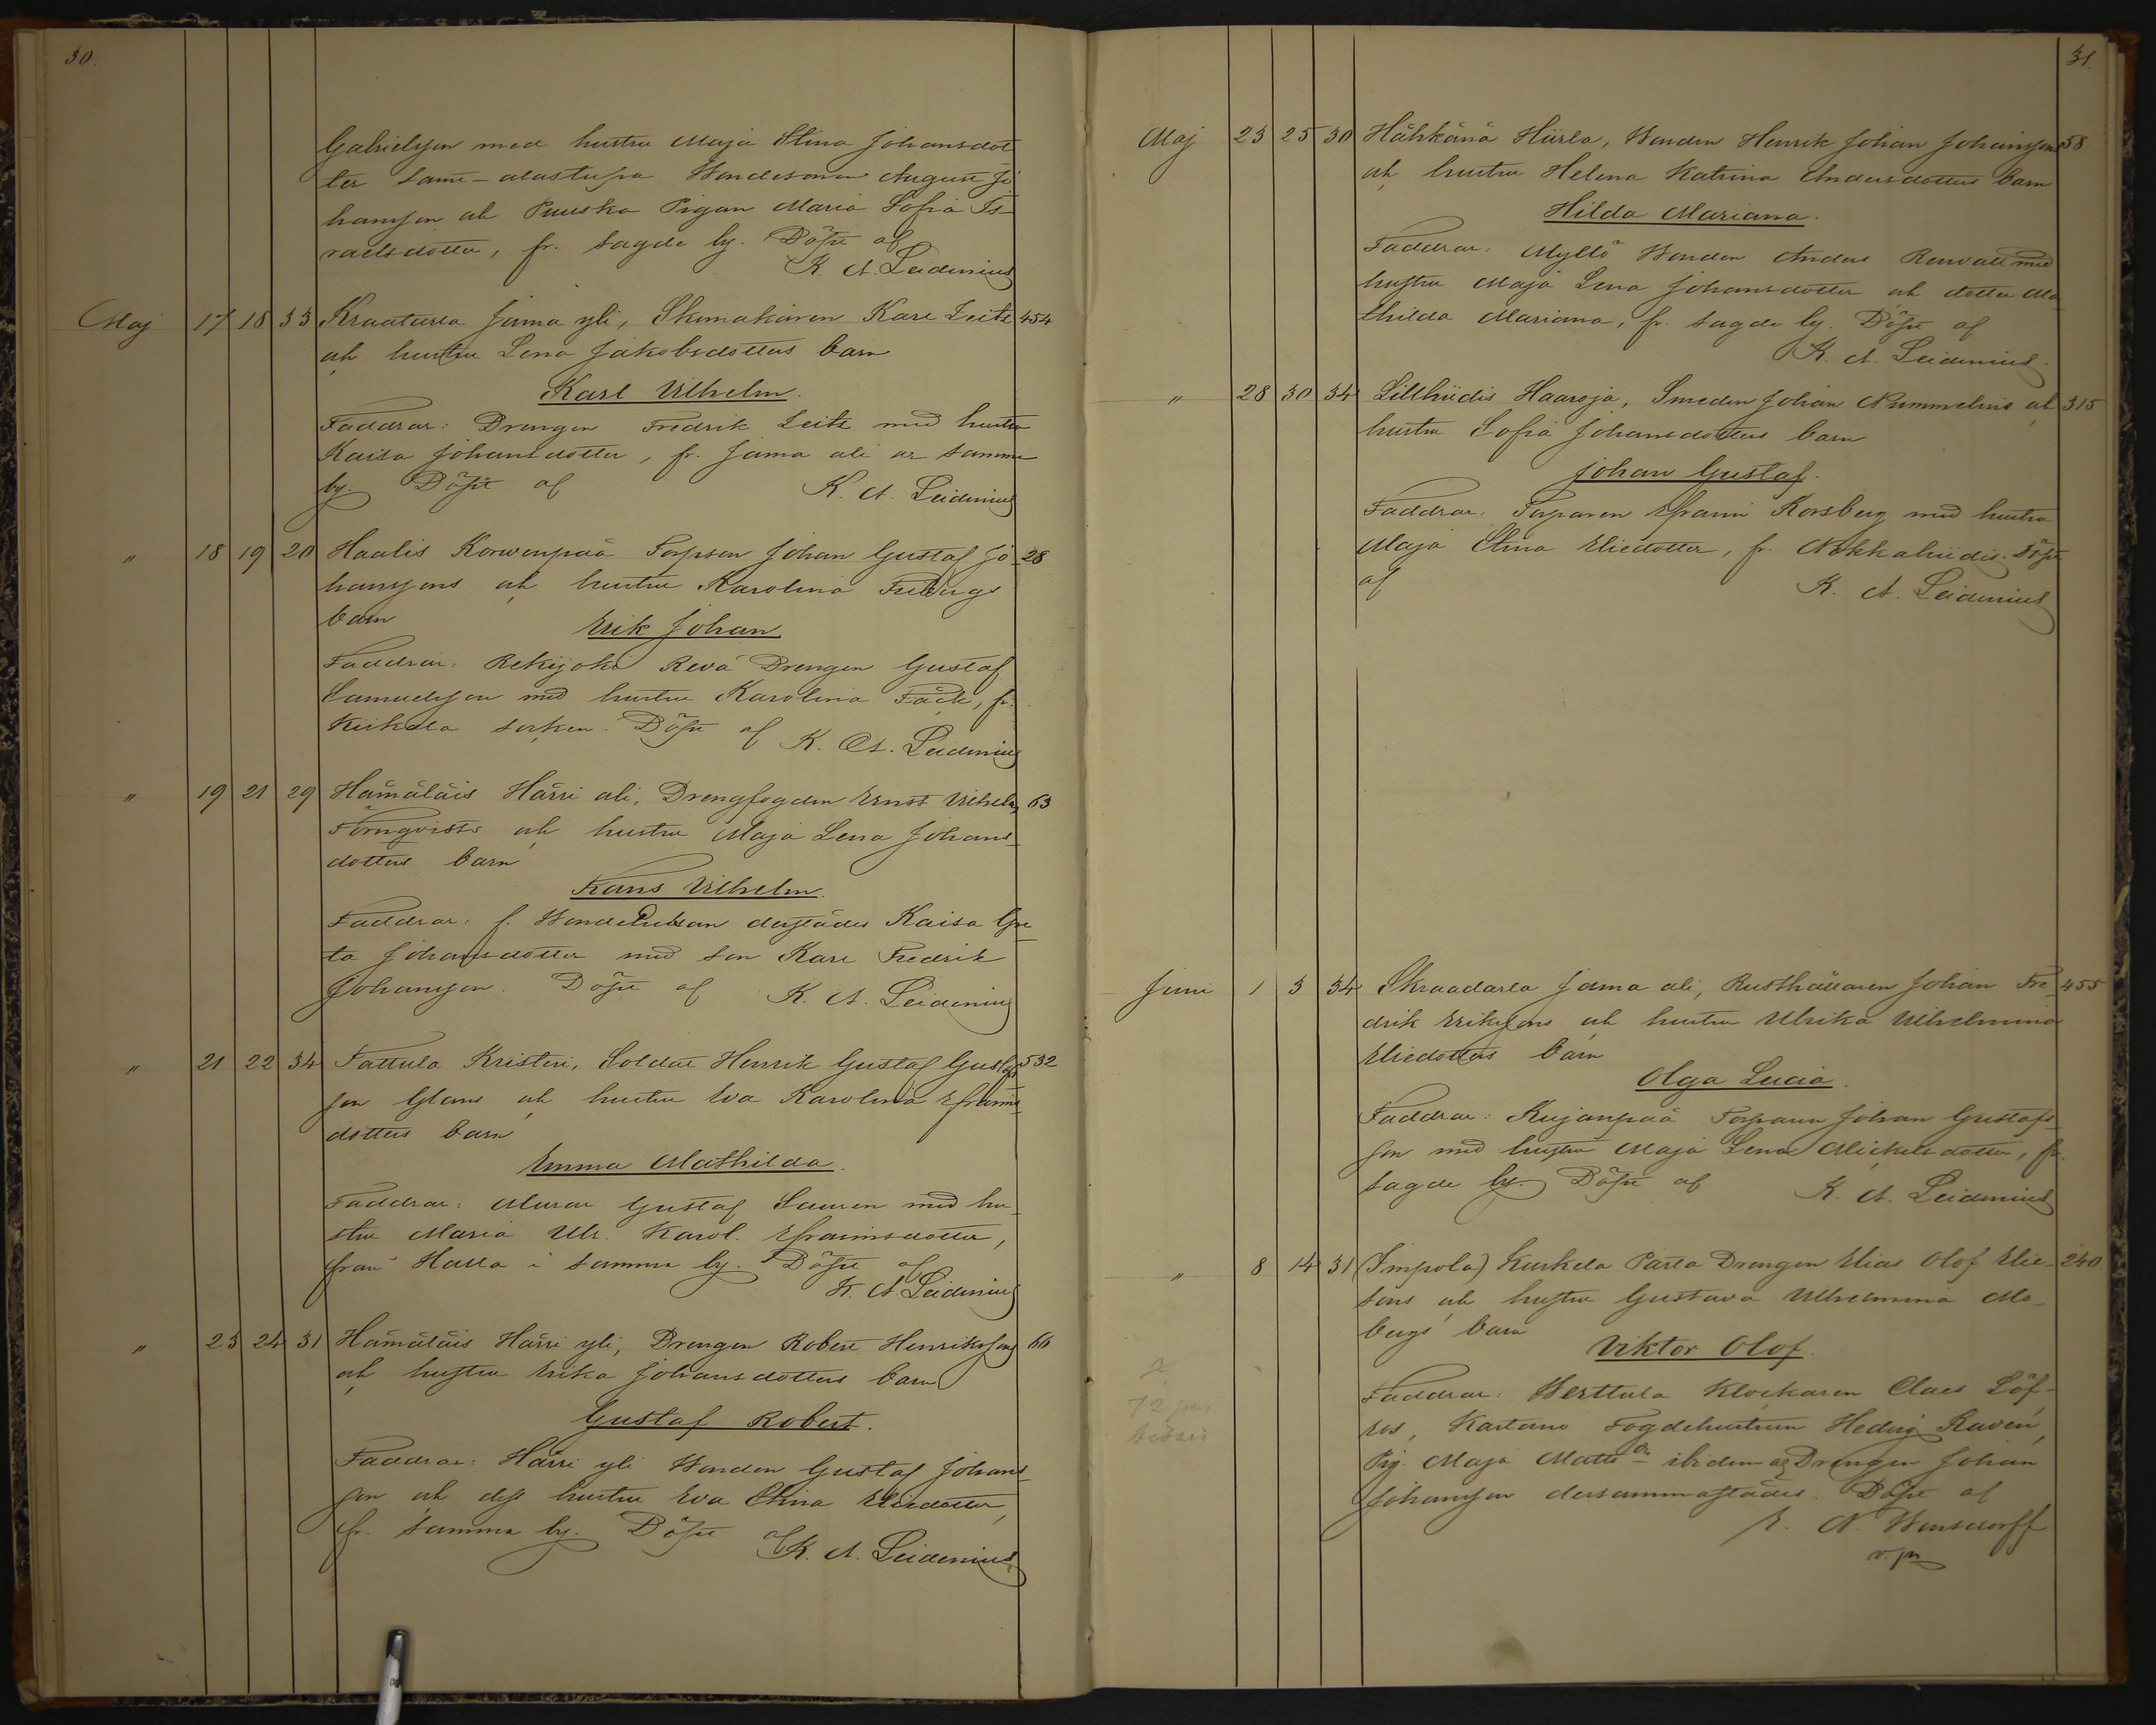 30.
Gabrielsson med hustru Maja Stina Johansdot
ter same-alastupa Bondesonen August Jo
hansson och Puuska Pigan Maria Sofia Is-
raelsdotter, fr. sagde by. Döpt af
K. A. Leidenius
Maj 17 18 33 Kraatarla Jama yli, Skomakaren Karl Leits 454
och hustru Lena Jakobsdotters barn
Karl Vilhelm.
Faddrar: Drengen Fredrik Leits med hustru
Kaisa Johansdotter, fr. Jama ali i samma
by. Döpt af K. A. Leidenius
" 18 19 20 Haalis Korwenpää Torpson Johan Gustaf Jo- 28
hanssons och hustru Karolina Fredbergs
barn
Erik Johan
Faddrar: Rekijoki Revä Drengen Gustaf
Samuelsson med hustru Karolina Fäck, fr.
Kiikala socken. Döpt af K. A. Leidenius
" 19 21 29 Hämäläis Härri ali, Drengfogden Ernst Vilhelm 63
Törnqvists och hustru Maja Lena Johans-
dotters barn
Frans Vilhelm.
Faddrar: f. Bondeenkan derstädes Kaisa Gre
ta Johansdotter med son Karl Fredrik
Johansson. Döpt af K. A. Leidenius
" 21 22 34 Tattula Kristeri, Soldat Henrik Gustaf Gustafs 532
son Glans och hustru Eva Karolina Efraims
dotters barn
Emma Mathilda.
Faddrar: Murar Gustaf Lauren med hu-
stru Maria Ulr. Karol. Efraimsdotter,
från Halla i samma by. Döpt af
K. A. Leidenius
" 23 24 31 Hämäläis Härri yli, Drengen Robert Henrikssons 66
och hustru Erika Johansdotters barn
Gustaf Robert.
Faddrar: Härri yli Bonden Gustaf Johans-
son och dess hustru Eva Stina Eliedotter,
fr. samma by. Döpt af K. A. Leidenius
31.
Maj 23 25 30 Hähkänä Hiirla, Bonden Henrik Johan Johanssons 58
och hustru Helena Katrina Andersdotters barn
Hilda Mariana.
Faddrar: Myllö Bonden Anders Renvall med
hustru Maja Lena Johansdotter och dotter Ma
thilda Mariana, fr. sagde by. Döpt af
K. A. Leidenius.
" 28 30 34 Lillhiidis Haaroja, Smeden Johan Nummelins och 315
hustru Sofia Johansdotters barn
Johan Gustaf.
Faddrar: Torparen Efraim Korsberg med hustru
Maja Stina Eliedotter, fr. Nokkahiidis. Döpt
af K. A. Leidenius
Juni 1 3 34 Skraadarla Jama ali, Rusthållaren Johan Fre- 455
drik Erikssons och hustru Ulrika Vilhelmina
Eliedotters barn
Olga Lucia.
Faddrar: Kujanpää Torparen Johan Gustafs-
son med hustru Maja Lena Michelsdotter, fr.
sagde by. Döpt af K. A. Leidenius
" 8 14 31 (Impola) Kurkela Parla Drengen Elias Olof Elie- 240
sons och hustru Gustava Vilhelmina Mo-
bergs barn
Viktor Olof.
Faddrar: Herttula Klockaren Claes Löf-
ros, Kartano Fogdehustrun Hedvig Raven,
Pig. Maja Matts dr. ibidem og Drengen Johan
Johansson dersammastädes. Döpt af
72
E. N. Wensdorff
v. pr